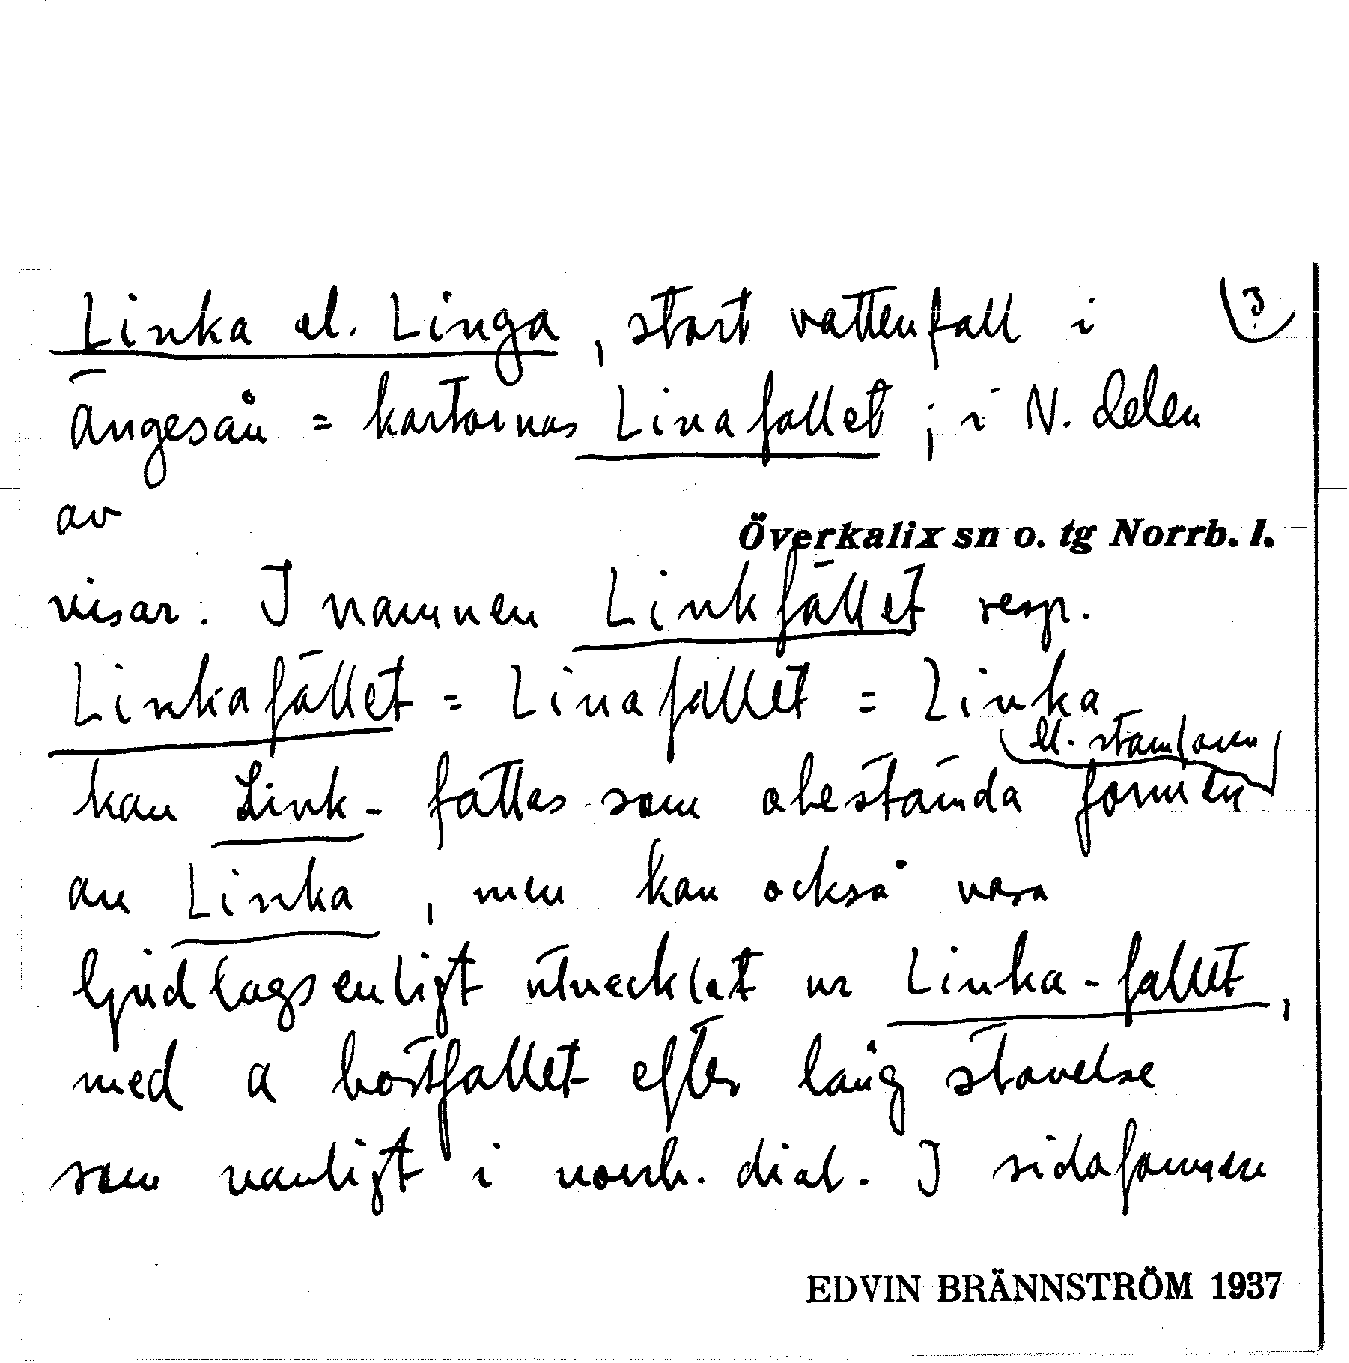 Linka el. Linga, stort vattenfall i 3
Ängesån = kartornas Linafallet ; i N. delen
av
Överkalix sn o. tg Norrb. l.
visar. I namnen Linkfället resp.
Linkafället = Linafallet = Linka
el. stamformen
kan Link- fattas som obestämda formen
av Linka, men kan också vara
ljudlagsenligt utvecklat ur Linka-fallet,
med a bortfallet efter lång stavelse
som vanligt i norrb. dial. I sidoformen
EDVIN BRÄNNSTRÖM 1937